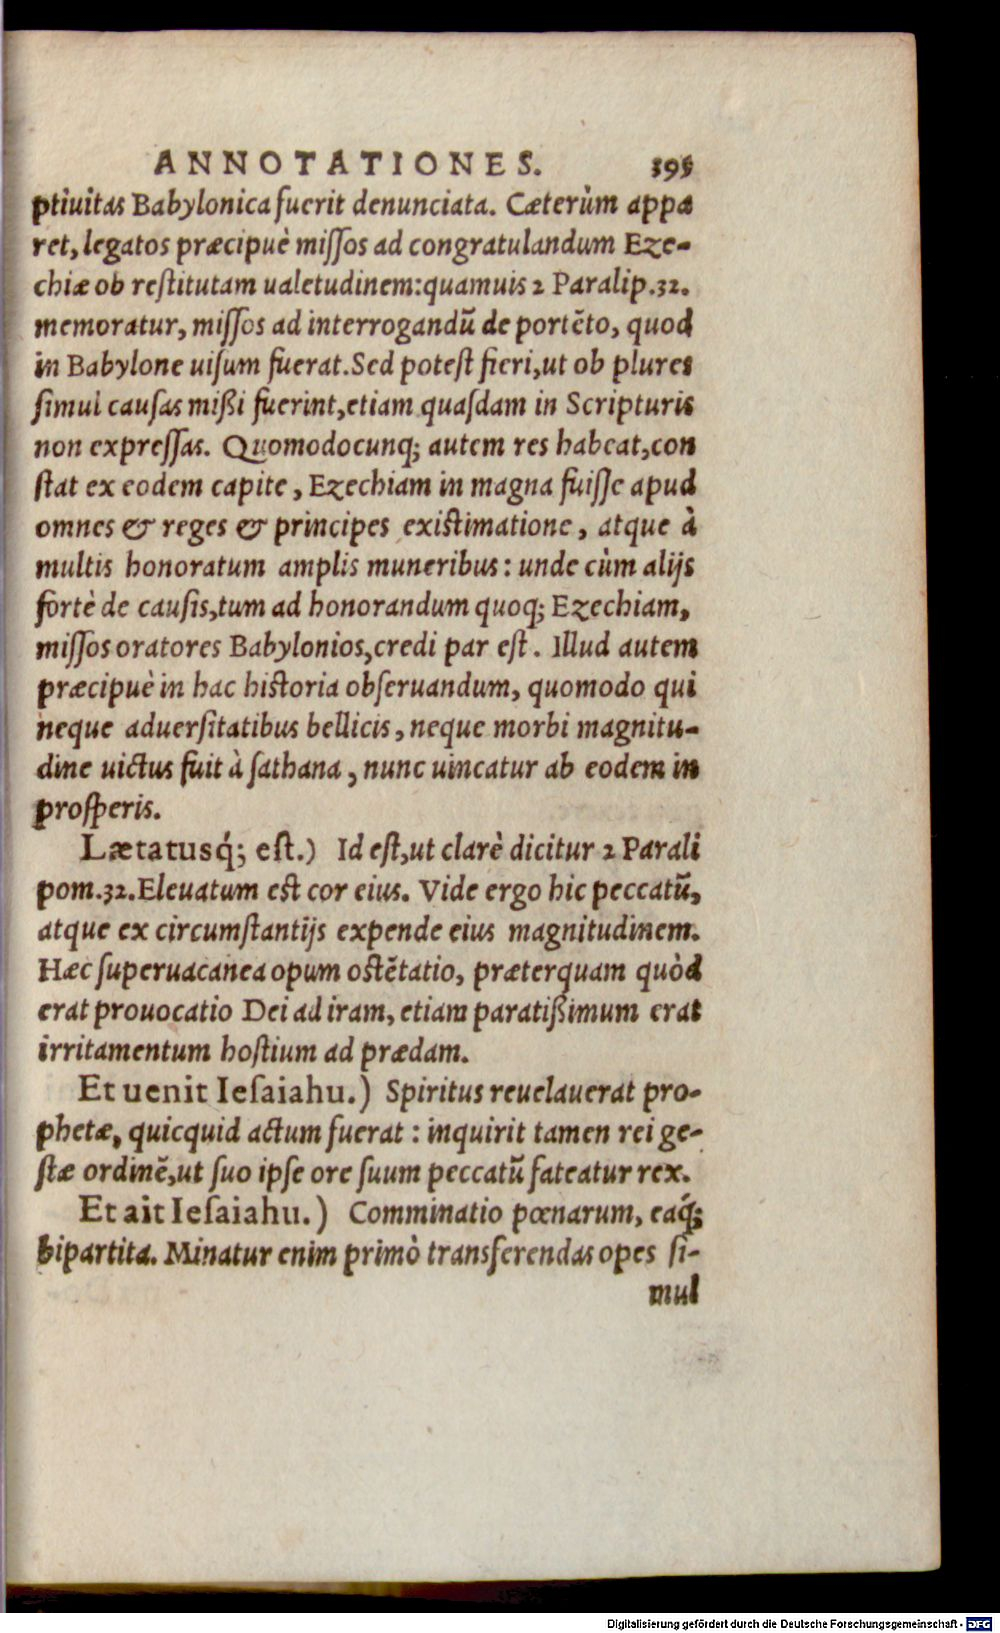 ANNOTATIONES. 395
ptiuitas Babylonica fuerit denunciata. Cæterùm appa
ret, legatos præcipuè miſſos ad congratulandum Eze-
chiæ ob reſtitutam ualetudinem: quamuis 2 Paralip. 32.
memoratur, miſſos ad interrogandū de portēto, quod
in Babylone uiſum fuerat. Sed poteſt fieri, ut ob plures
ſimul cauſas mißi fuerint, etiam quaſdam in Scripturis
non expreſſas. Quomodocunq; autem res habeat, con
ſtat ex eodem capite, Ezechiam in magna fuiſſe apud
omnes & reges & principes exiſtimatione, atque à
multis honoratum amplis muneribus: unde cùm alijs
fortè de cauſis, tum ad honorandum quoq; Ezechiam,
miſſos oratores Babylonios, credi par eſt. Illud autem
præcipuè in hac hiſtoria obſeruandum, quomodo qui
neque aduerſitatibus bellicis, neque morbi magnitu-
dine uictus fuit à ſathana, nunc uincatur ab eodem in
proſperis.
Lætatusq́; eſt.) Id eſt, ut clarè dicitur 2 Parali
pom. 32. Eleuatum eſt cor eius. Vide ergo hic peccatū,
atque ex circumſtantijs expende eius magnitudinem.
Hæc ſuperuacanea opum oſtētatio, præterquam quòd
erat prouocatio Dei ad iram, etiam paratißimum erat
irritamentum hoſtium ad prædam.
Et uenit Ieſaiahu.) Spiritus reuelauerat pro-
phetæ, quicquid actum fuerat: inquirit tamen rei ge-
ſtæ ordinē, ut ſuo ipſe ore ſuum peccatū fateatur rex.
Et ait Ieſaiahu.) Comminatio pœnarum, eaq́;
bipartita. Minatur enim primò transferendas opes ſi-
mul
Digitalisierung gefördert durch die Deutsche Forschungsgemeinschaft - DFG